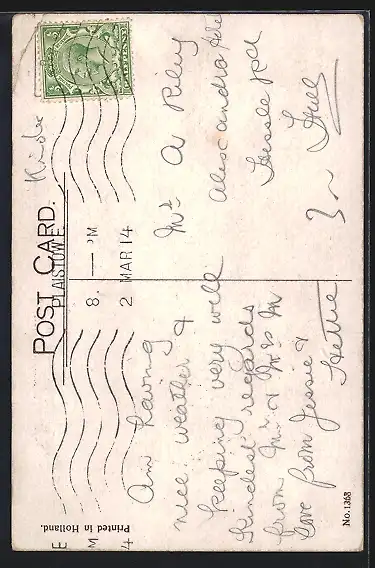 POST CARD.
PLAISTOW E
8. — PM
2 MAR 14
Am having
nice weather &
keeping very well
Kindest regards
from Mr & Mrs M
love from Jessie &
Hettie
Mrs A Riley
Alexandra
Hessle Rd
Hull
E
M
4
Printed in Holland.
No. 1368